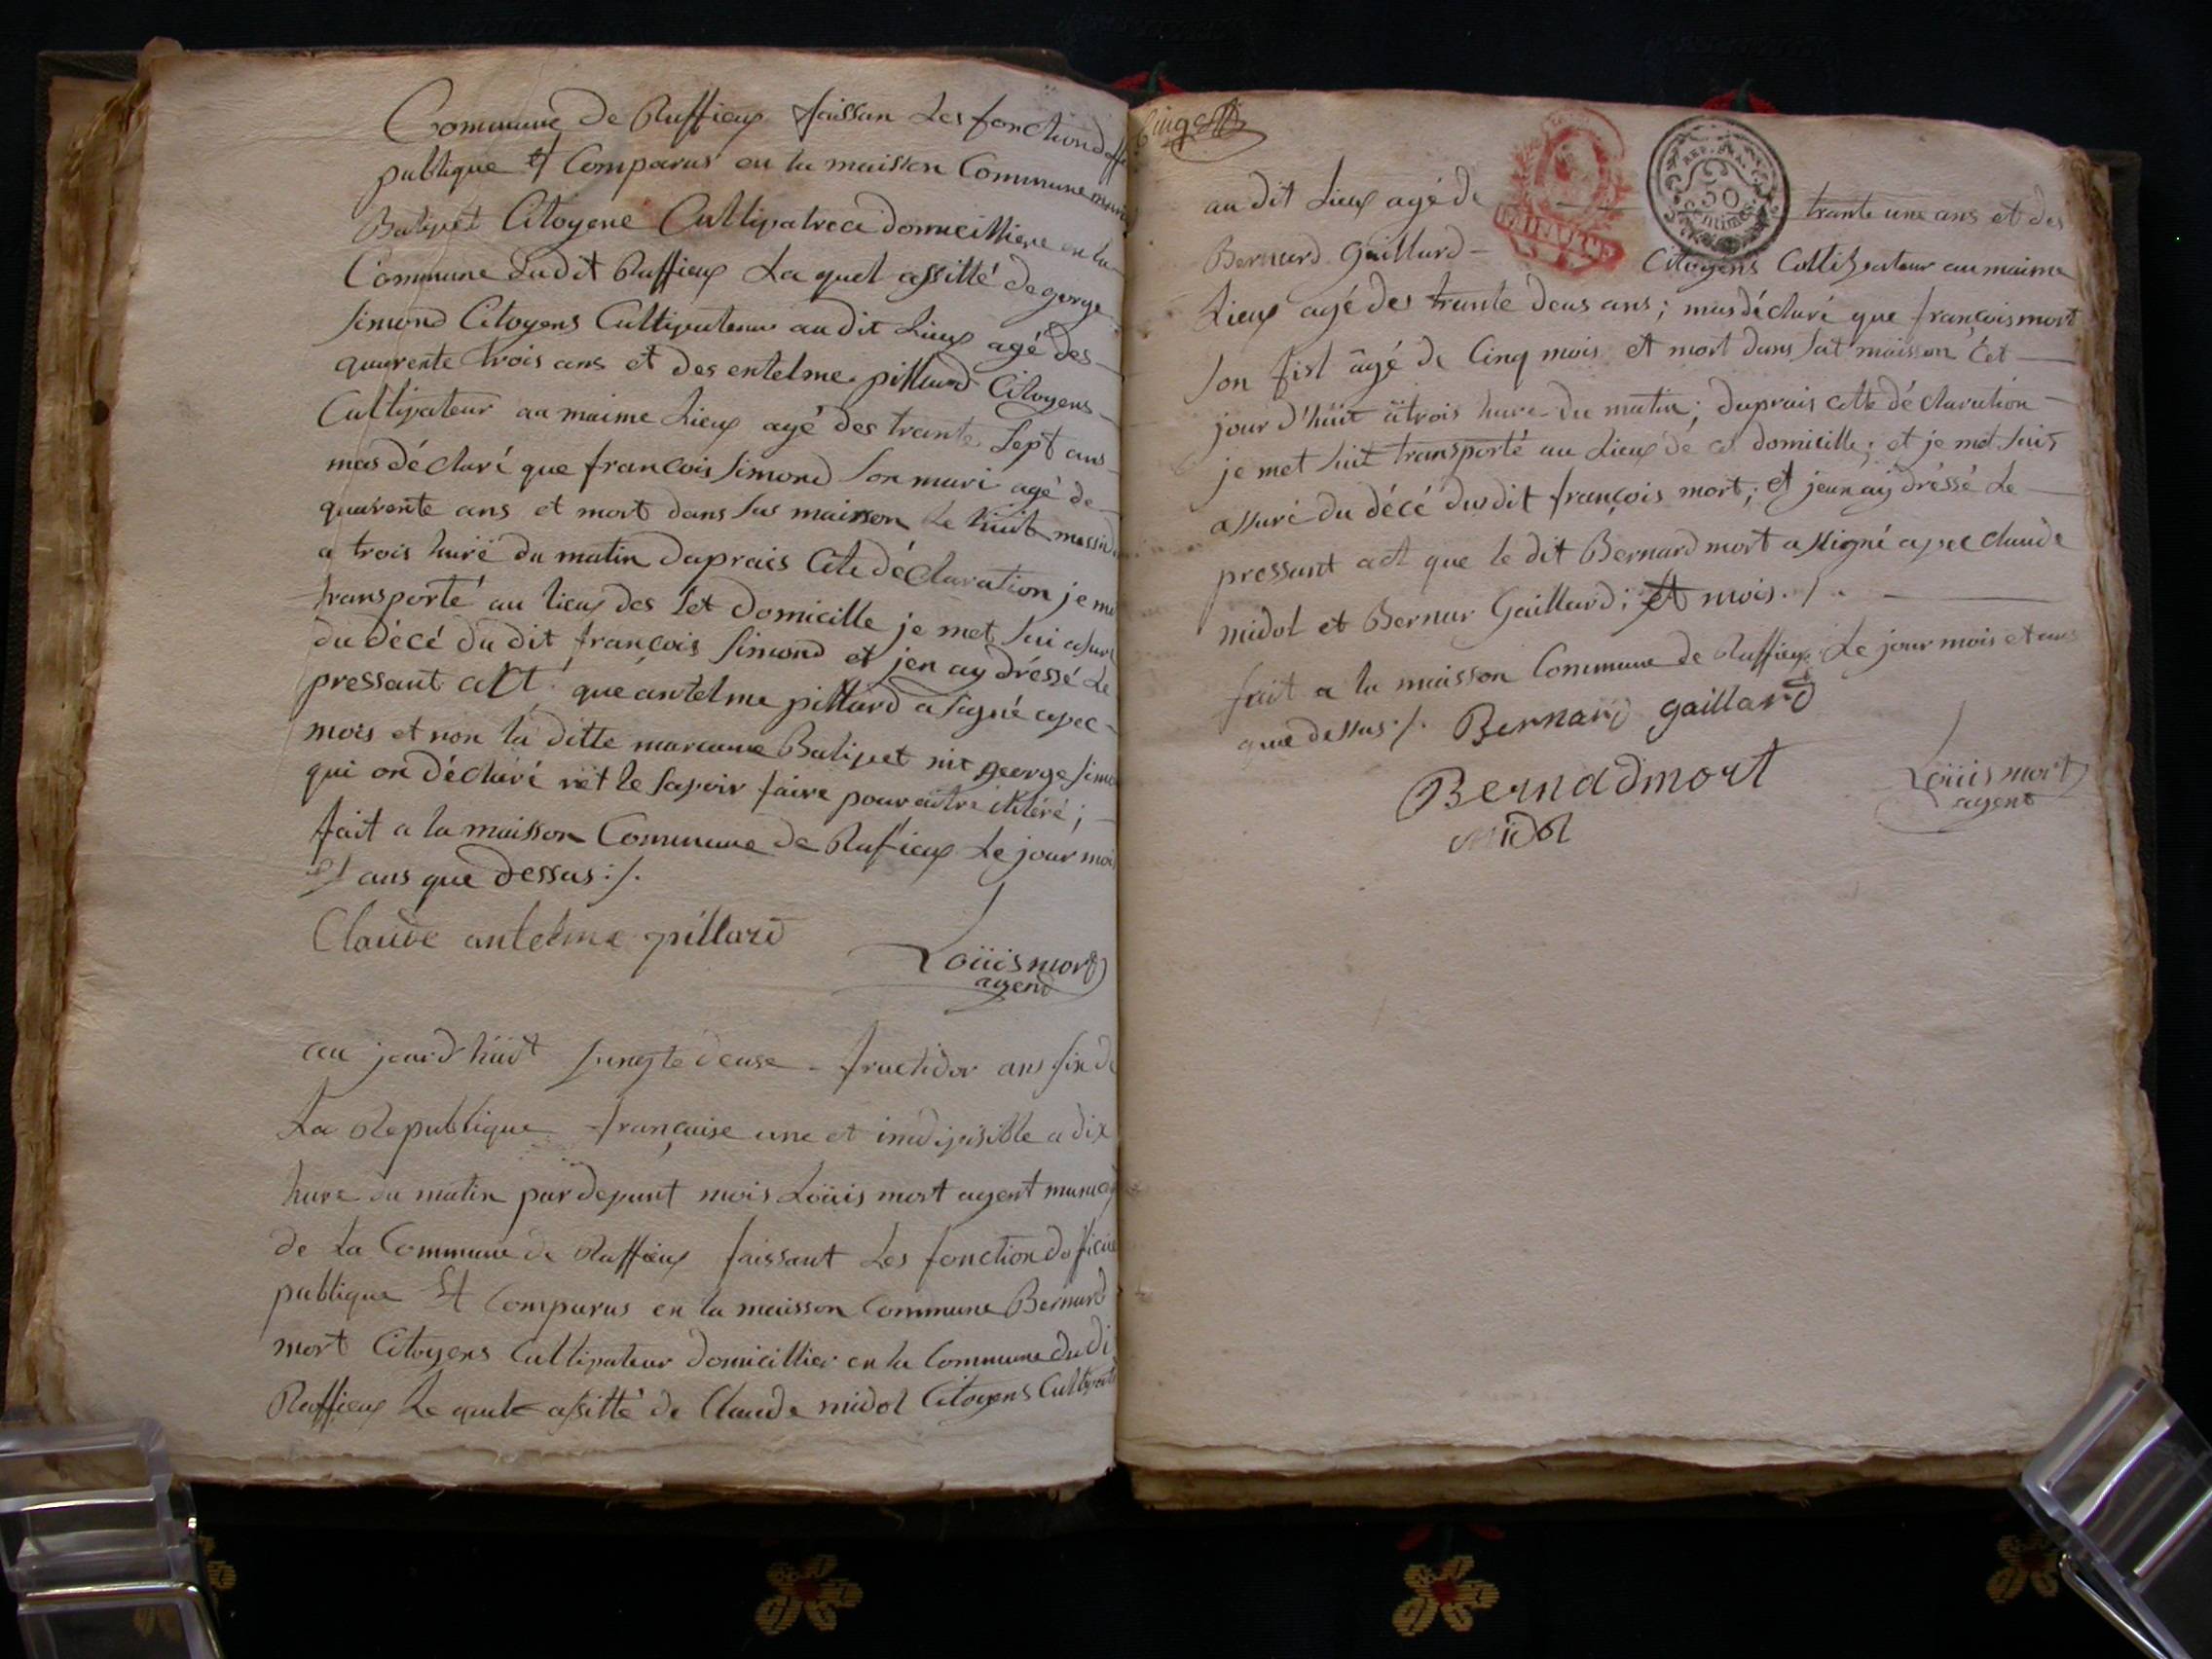 Commune de Ruffieux faissan Les fonction doffi
publique et Comparus en la maisson Commune
Balivet Citoyene Cultivatrece domicilliere en la
Commune dudit Ruffieux La quel assitté de george
Simond Citoyens Cultivateur au dit Lieux agé des
quarente trois ans et des entelme pillard Citoyens
Cultivateur au maime Lieux agé des trante Sept ans
mas déclaré que francois Simond Son mari agé de
quarente ans et mort dans Sas maisson Le huit messid
a trois hure du matin daprais Cete déclaration je me
transporté au lieux des Set domicille je met Sui asuré
du décé du dit françois Simond et jen ay dréssé Le
pressant act que antelme pillard a Signé avec
mois et non la ditte marianne Balivet nit george Simo
qui on déclaré nêt le Savoir faire pour aître iliteré ;
fait a la maisson Commune de Rufieux Le jour moi
et ans que dessus :/.
Claude antelme pillard
Loüis mort
agend
au jourd'hüit Vingte deuse fructidor ans Six de
La Republique française une et indivisible a dix
hure du matin par devant mois Loüis mort agent munici
de La Commune de Ruffieux faissant Les fonction doficie
publique Et Comparus en la maisson Commune Bernard
mort Citoyens Cultivateur domicillier en la Commune dudi
Ruffieux Le quel assitté de Claude midol Citoyens Cultivate
au dit Lieux agé de trante une ans et des
REP. FRA.
50
Centimes
Bernard Gaillard Citoyens Cultivateur au maime
Lieux agé des trante deus ans ; mas déclaré que françois mort
Son fisl âgé de Cinq mois et mort dans Sat maisson Cet
jour d'hüit à trois hure du matin ; daprais cette déclaration
je met Suit transporté au Lieux de ce domicille ; et je met Suis
assuré du décé dusdit françois mort ; et jean ay dréssé Le
pressant act que le dit Bernard mort a Signé avec Claude
midol et Bernar Gaillard ; Et mois ./.
fait a la maisson Commune de Ruffieux Le jour mois et ans
que dessus ./. Bernard gaillard
Bernadmort
Loüis mort
agent
midol